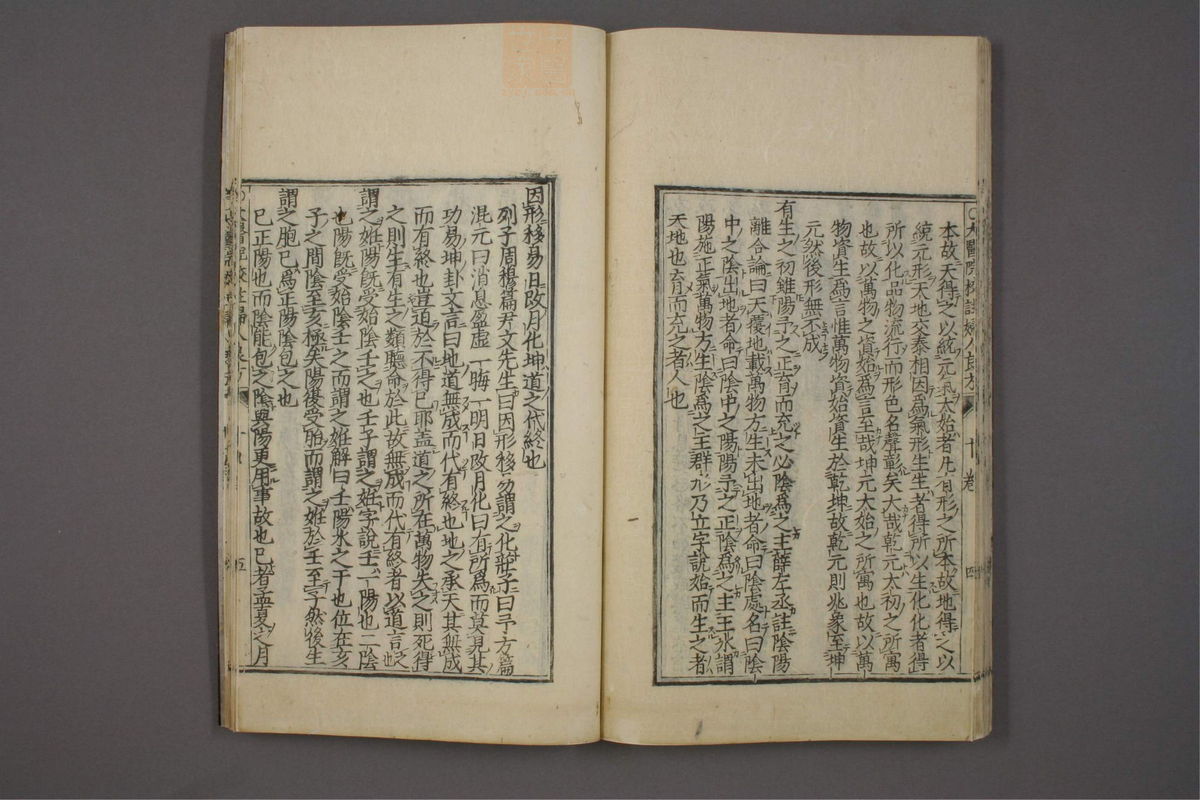 本故天得之以統元氣太始者凡有形之所本故地得之以
統元形天地交泰相因爲氣形生生者得所以生化化者得
所以化品物流行而形色名聲彰矣大哉乾元太初之所寓
也故以萬物之資始爲言至哉坤元太始之所寓也故以萬
物資生爲言惟萬物資始資生於乾坤故乾元則兆象至坤
元然後形無不成
有生之初雖陽予之正育而充之必陰爲之主薛左丞註陰陽
離合論曰天覆地載萬物方生未出地者命曰陰處名曰陰
中之陰出地者命曰陰中之陽陽予之正陰爲之主王氷謂
陽施正氣萬物方生陰爲之主群形乃立字說始而生之者
天地也育而充之者人也
因形移易日改月化坤道之代終也
列子周穆篇尹文先生曰因形移易謂之化莊子曰子方篇
混元曰消息盈虛一晦一明日改月化日有所爲而莫見其
功易坤卦文言曰地道無成而代有終也地之承天其無成
而有終也豈迫於不得已耶盖道之所在萬物失之則死得
之則生有生之類聽命於此故無成而代有終者以道言之也
謂之姙陽旣受始陰壬之也壬子謂之姙字說壬一陽也二陰
也陽旣受始陰壬之而謂之姙解曰壬陽水之干也位在亥
子之間陰至亥極矣陽復受胎而謂之姙於壬至子然後生
謂之胞已爲正陽陰包之也
巳正陽也而陰能包之陰與陽更用事故也巳者孟夏之月